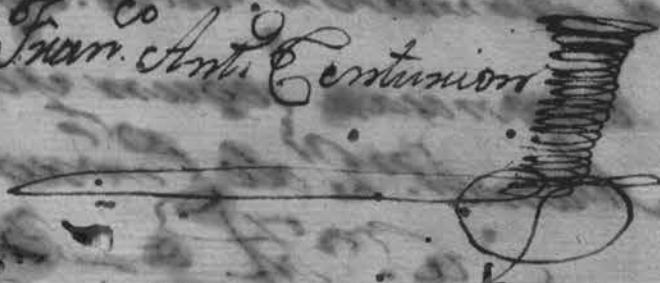 Fran.co Anto Centurion